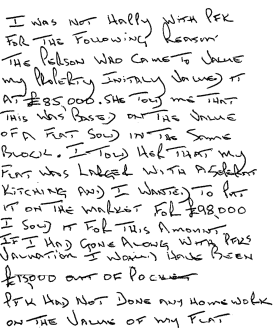 I WAS NOT HAPPY WITH PFK
FOR THE FOLLOWING REASON
THE PERSON WHO CAME TO VALUE
MY PROPERTY INITIALY VALUED IT
AT £85,000. SHE TOLD ME THAT
THIS WAS BASED ON THE VALUE
OF A FLAT SOLD IN THE SAME
BLOCK. I TOLD HER THAT MY
FLAT WAS LARGER WITH A SEPERATE
KITCHING AND I WANTED TO PUT
IT ON THE MARKET FOR £98000
I SOLD IT FOR THIS AMOUNT.
IF I HAD GONE ALONG WITH PFKS
VALUATION I WOULD HAVE BEEN
£13000 OUT OF POCKET
PFK HAD NOT DONE ANY HOMEWORK
ON THE VALUE OF MY FLAT